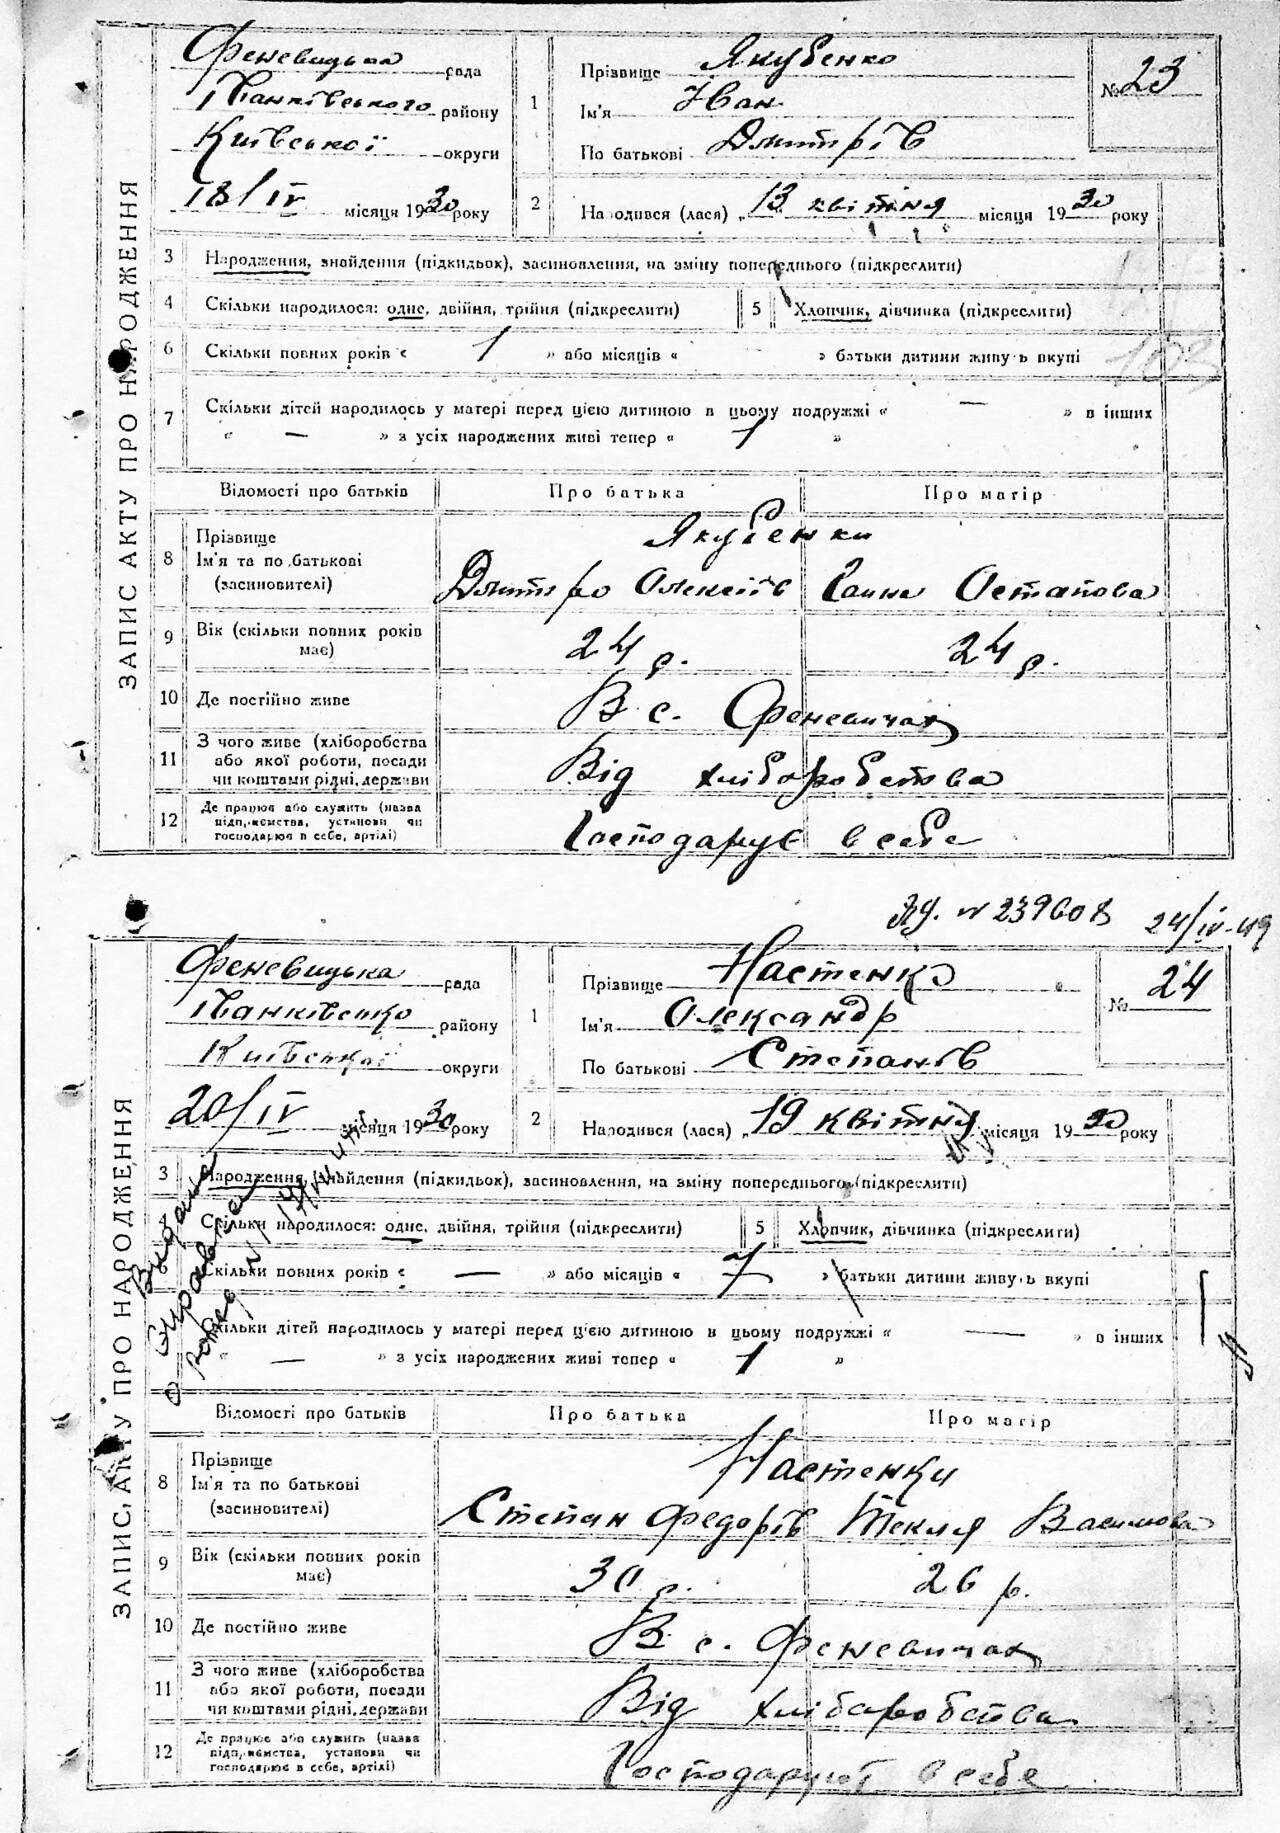 ЗАПИС АКТУ ПРО НАРОДЖЕННЯ
Феневицька рада
Іванківського району
Київської округи
18/IV місяця 1930 року
1 Прізвище Якубенко
Ім'я Іван
По батькові Дмитрів
№ 23
2 Народився (лася) „ 13 квітня місяця 1930 року
3 Народження, знайдення (підкидьок), засиновлення, на зміну попереднього (підкреслити)
4 Скільки народилося: одне, двійня, трійня (підкреслити) 5 Хлопчик, дівчинка (підкреслити)
6 Скільки повних років « 1 » або місяців « » батьки дитини живуть вкупі
103
7 Скільки дітей народилось у матері перед цією дитиною в цьому подружжі « — » в інших
« — » з усіх народжених живі тепер « 1 »
Відомості про батьків Про батька Про матір
8 Прізвище
Ім'я та по батькові
(засиновителі)
Якубенки
Дмитро Олексіїв Ганна Остапова
9 Вік (скільки повних років має) 24 р. 24 р.
10 Де постійно живе В с. Феневичах
11 З чого живе (хліборобства
або якої роботи, посади
чи коштами рідні, держави
Від хліборобства
12 Де працює або служить (назва
підприємства, установи чи
господарює в себе, артілі)
Господарує в себе
№ 239608 24/IV-49
ЗАПИС АКТУ ПРО НАРОДЖЕННЯ
Феневицька рада
Іванківсько району
Київської округи
20/IV місяця 1930 року
1 Прізвище Настенко
Ім'я Олександр
По батькові Степанів
№ 24
2 Народився (лася) „ 19 квітня місяця 1930 року
3 Народження, знайдення (підкидьок), засиновлення, на зміну попереднього (підкреслити)
Скільки народилося: одне, двійня, трійня (підкреслити) 5 Хлопчик, дівчинка (підкреслити)
Скільки повних років « — » або місяців « 7 » батьки дитини живуть вкупі
Скільки дітей народилось у матері перед цією дитиною в цьому подружжі « — » в інших
« — » з усіх народжених живі тепер « 1 »
Выдана
справка
о рожд
Відомості про батьків Про батька Про матір
8 Прізвище
Ім'я та по батькові
(засиновителі)
Настенки
Степан Федорів Текля Василова
9 Вік (скільки повних років має) 30 р. 26 р.
10 Де постійно живе В с. Феневичах
11 З чого живе (хліборобства
або якої роботи, посади
чи коштами рідні, держави
Від хліборобства
12 Де працює або служить (назва
підприємства, установи чи
господарює в себе, артілі)
Господарують в себе